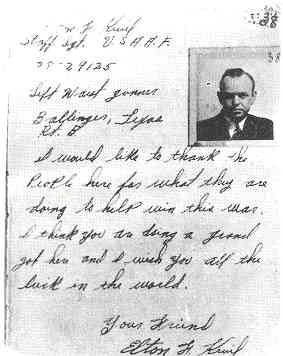 Staff Sgt. U S A A F.
Left Waist gunner
Ballinger, Texas
Rt. B
I would like to thank the
People here for what they are
doing to help win this war.
I think you are doing a grand
job here and I wish you all the
luck in the world.
Your Friend
Elton F.